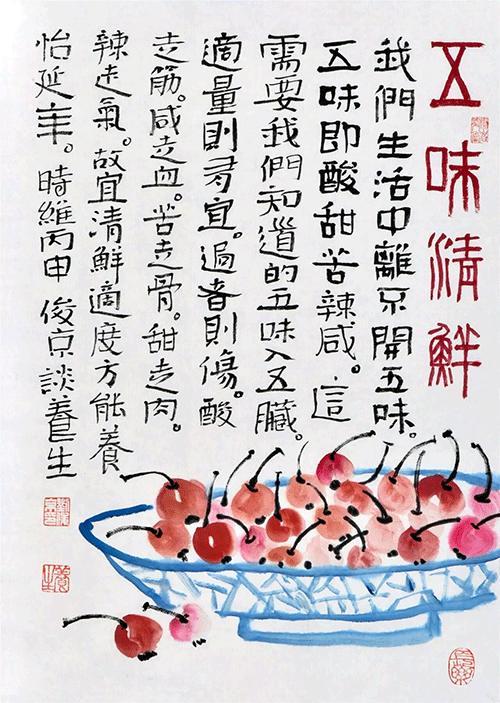 五味清鮮
我們生活中離不開五味。
五味即酸甜苦辣咸。這
需要我們知道的五味入五臟。
適量則宜。過者則傷。酸
走筋。咸走血。苦走骨。甜走肉。
辣走氣。故宜清鮮適度方能養
怡延年。時維丙申 俊京談養生